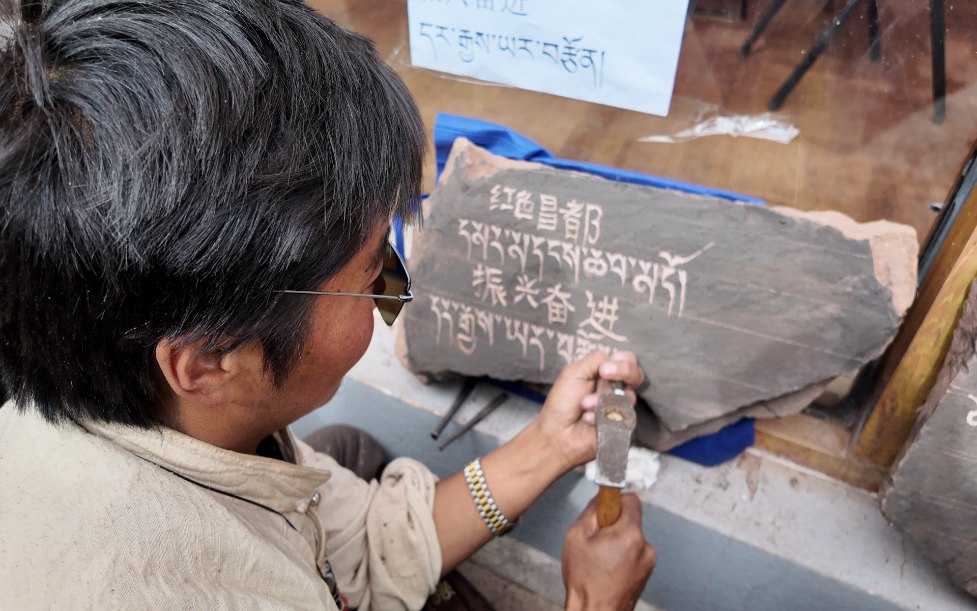 奋进
དར་རྒྱས་ཡར་བརྩོན།
红色昌都
དམར་མདངས་ཆབ་མདོ།
振兴奋进
དར་རྒྱས་ཡར་བརྩོན